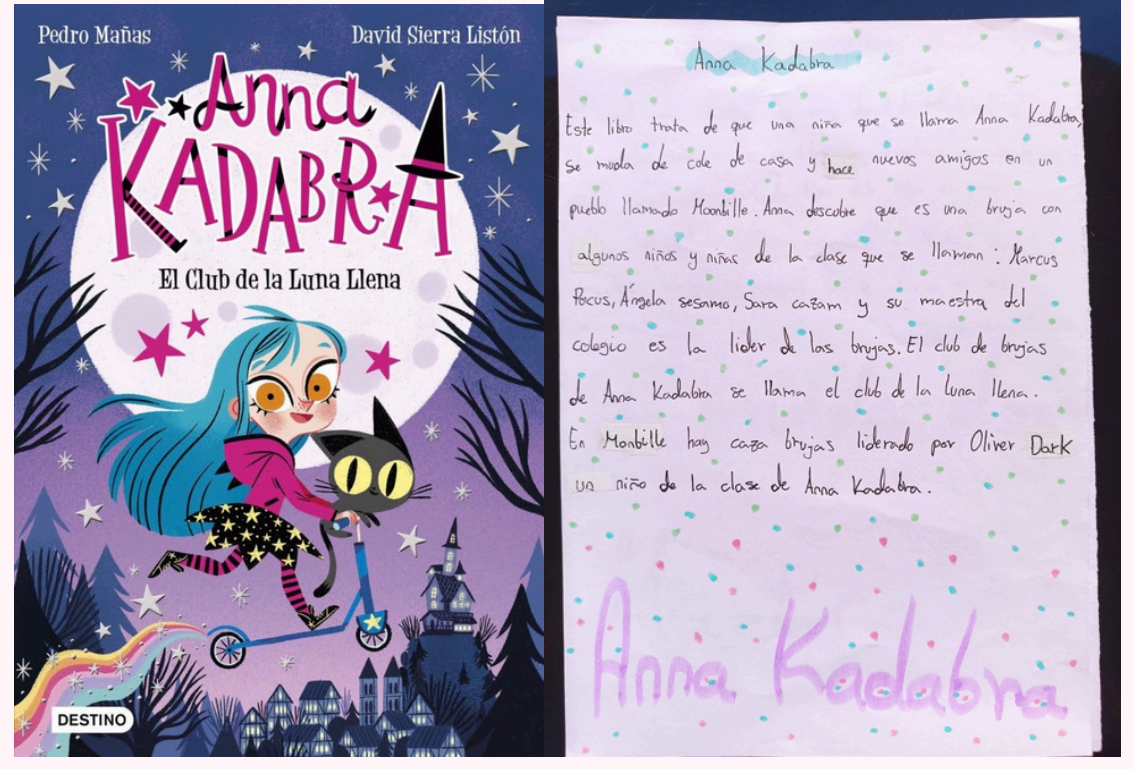 Pedro Mañas
David Sierra Listón
Anna
KADABRA
El Club de la Luna Llena
DESTINO
Anna Kadabra
Este libro trata de que una niña que se llama Anna Kadabra,
se muda de cole de casa y hace nuevos amigos en un
pueblo llamado Moonbille. Anna descubre que es una bruja con
algunos niños y niñas de la clase que se llaman: Marcus
Pocus, Ángela sesamo, Sara cazam y su maestra del
colegio es la lider de las brujas. El club de brujas
de Anna Kadabra se llama el club de la luna llena.
En Monbille hay caza brujas liderado por Oliver Dark
un niño de la clase de Anna Kadabra.
Anna Kadabra